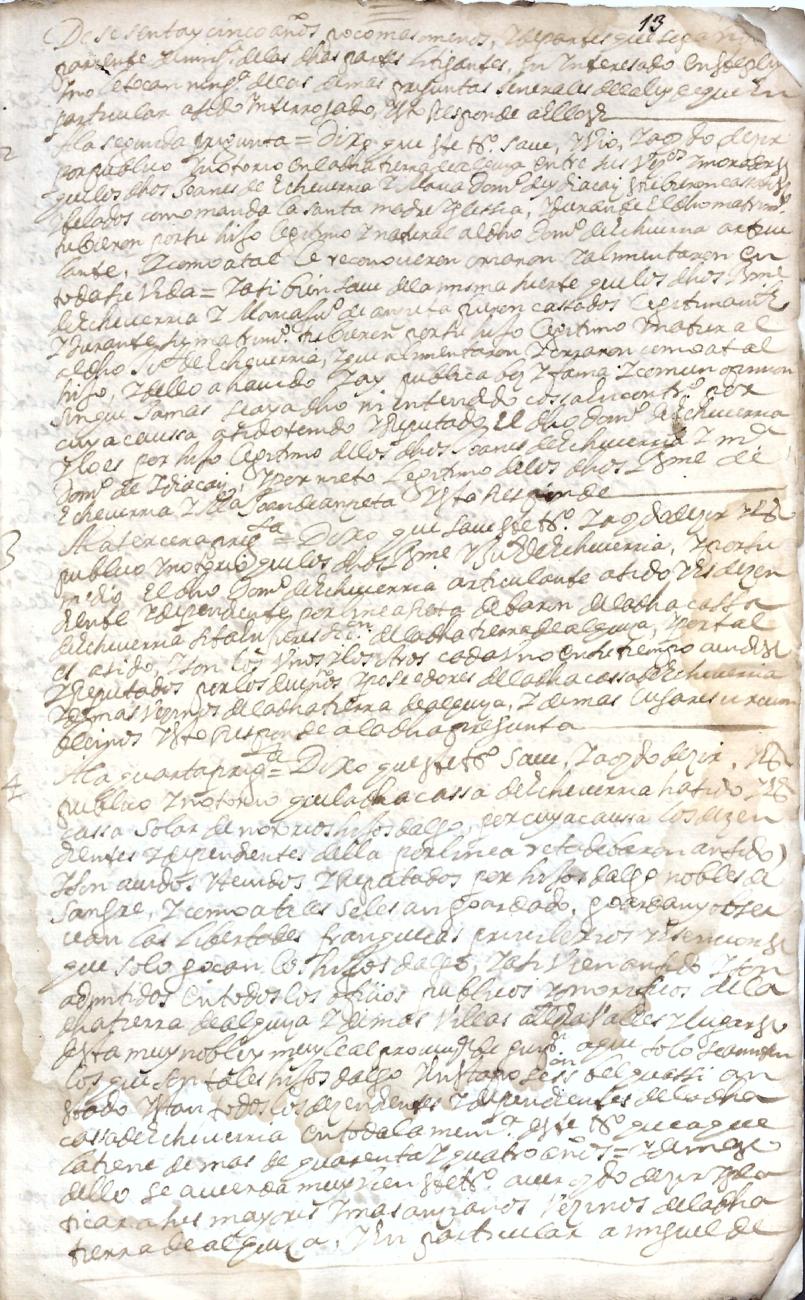 13
De sesenta y cinco años poco mas o menos, y de partes que sepa ni
pariente de ning.ª de las dhas partes litigantes, ni interesado en
y no le tocan ning.ª de las demas preguntas generales de la ley que en
particular a sido interrogado, y esto responde a ella
2
A la segunda pregunta = Dixo que este t.º save, vio, y a oydo dezir
por publico y notorio en la dha tierra de alquiça entre sus vz.ºs y moradores
que los dhos Joanes de Echeverria y Maria Dom.ª de ydiacaiz estubieron cassados
y belados como manda la santa madre yglesia, y durante el dho matrim.º
tubieron por su hijo legitimo y natural al dho Dom.º de Echeverria articu
lante, y como a tal le reconocieron criaron y alimentaron en
toda su vida = y assi bien save de la misma suerte que los dhos
de Echeverria y Maria de fueron cassados legitimam.te
y durante su matrim.º tubieron por su hijo legitimo y natural
al dho de Echeverria, y que alimentaron y criaron como a tal
hijo, y dello a havido y ay publica voz y fama y comun opinion
sin que jamas se aya dho ni entendido cossa en contr.º por
cuya caussa a sido tenido y reputado el dho Dom.º de Echeverria
y lo es por hijo legitimo de los dhos Joanes de Echeverria y m.ª
Dom.ª de ydiacaiz, y por nieto legitimo de los dhos de
Echeverria y M.ª Joan de y esto responde
3
A la tercera preg.ta = Dixo que save este t.º y a oydo dezir y es
publico y notorio que los dhos de Echeverria, y por su
medio el dho Dom.º de Echeverria articulante a sido y es dezen
diente y dependiente por linea reta de baron de la dha cassa
de Echeverria sita en jurisdic.on de la dha tierra de alquiça, y por tal
es a sido, y son los unos y los otros cada uno en su tiempo avidos
y reputados por los dueños y poseedores de la dha cassa de Echeverria
y demas vezinos de la dha tierra de alquiça, y demas lugares circun
bezinos y esto responde a la dha pregunta
4
A la quarta preg.ta = Dixo que este t.º save, y a oydo dezir, y es
publico y notorio que la dha cassa de Echeverria ha sido y es
cassa solar de notorios hijos dalgo, por cuya caussa los dezen
dientes y dependientes della por linea reta de baron an sido
y son avidos tenidos y reputados por hijos dalgo nobles de
sangre, y como a tales se les an goardado, goardan y obser
van las libertades franquecas privilexios y esenciones
que solo gozan los hijos dalgo, y assi vien an sido y son
admitidos en todos los oficios publicos y onorificos de la
dha tierra de alquiça y demas villas alcaldias valles y lugares
desta muy noble y muy leal provin.ª de guip.ª a que solo se admiten
los que son tales hijos dalgo
estado y estan todos los dezendientes y dependientes de la dha
cassa de Echeverria en toda la mem.ª deste t.º que a que
la tiene de mas de quarenta y quatro años = y demas
dello se acuerda muy bien este t.º aver oydo dezir y pla
ticar a sus mayores y mas ancianos vezinos de la dha
tierra de alquiça, y en particular a miguel de